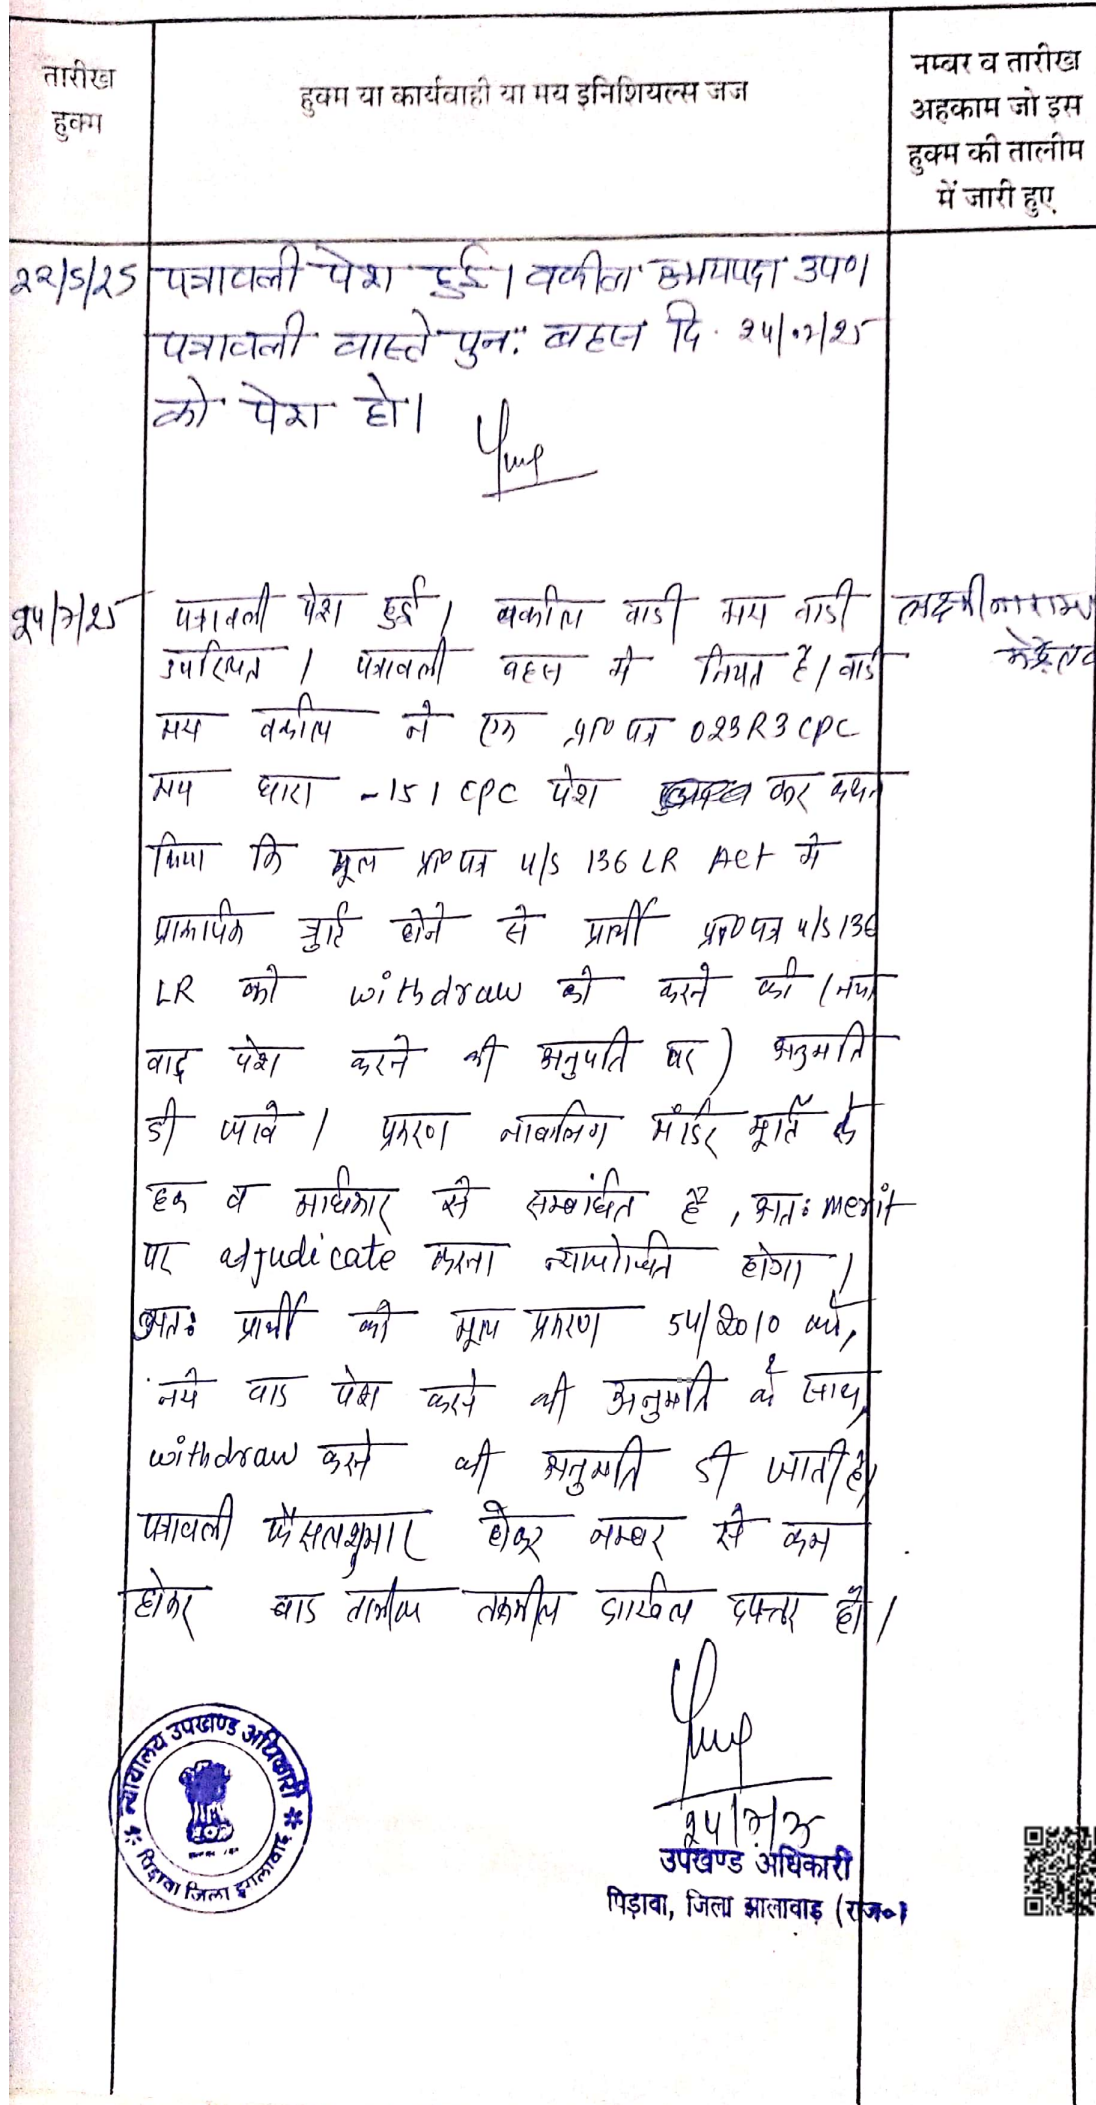 तारीख
हुक्म
हुक्म या कार्यवाही या मय इनिशियल्स जज
नम्बर व तारीख
अहकाम जो इस
हुक्म की तालीम
में जारी हुए
22/5/25 पत्रावली पेश हुई। वकील उभयपक्ष उप०।
पत्रावली वास्ते पुनः बहस दि. 24/07/25
को पेश हो।
24/7/25 पत्रावली पेश हुई। वकील वादी मय वादी
लक्ष्मीनारायण
उपस्थित। पत्रावली बहस में नियत है। वादी
मय वकील ने एक प्रा० पत्र O23R3 CPC
मय धारा -151 CPC पेश कर कथन
किया कि मूल प्रा० पत्र u/s 136 LR Act में
प्रारूपिक त्रुटि होने से प्रार्थी प्रा० पत्र u/s 136
LR को withdraw को करने की (नया
वाद पेश करने की अनुमति पर) अनुमति
दी जावे। प्रकरण नाबालिग मंदिर मूर्ति के
हक व अधिकार से सम्बंधित है, अतः merit
पर adjudicate करना न्यायोचित होगा।
अतः प्रार्थी को मूल प्रकरण 54/2010 को,
नये वाद पेश करने की अनुमति के साथ,
withdraw करने की अनुमति दी जाती है।
पत्रावली फैसलशुमार होकर नम्बर से कम
होकर बाद तामील तकमील दाखिल दफ्तर हो।
24/7/25
उपखण्ड अधिकारी
पिड़ावा, जिला झालावाड़ (राज०)
न्यायालय उपखण्ड अधिकारी
पिड़ावा जिला झालावाड़